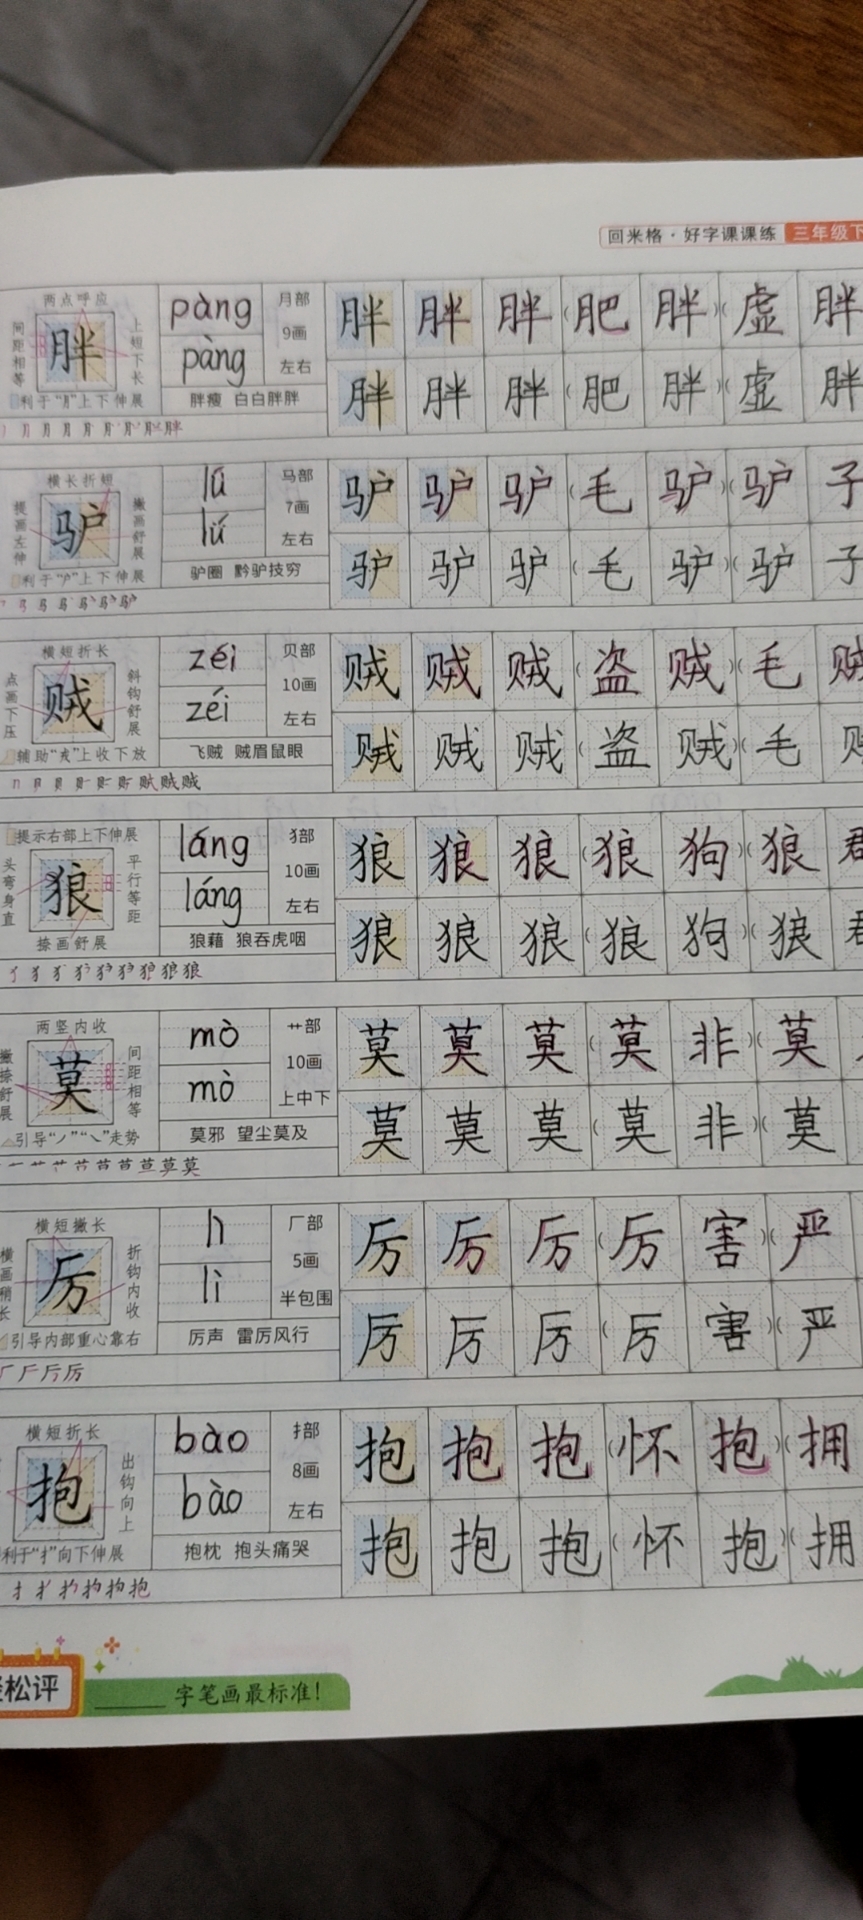 回米格·好字课课练 三年级下
两点呼应
间距相等
胖
上短下长
利于“月”上下伸展
pàng
pàng
月部
9画
左右
胖瘦 白白胖胖
胖 胖 胖 (肥 胖)(虚 胖
胖 胖 胖 (肥 胖)(虚 胖
横长折短
提画左伸
驴
撇画舒展
利于“户”上下伸展
lǘ
lǘ
马部
7画
左右
驴圈 黔驴技穷
驴 驴 驴 (毛 驴)(驴 子
驴 驴 驴 (毛 驴)(驴 子
横短折长
点画下压
贼
斜钩舒展
辅助“戎”上收下放
zéi
zéi
贝部
10画
左右
飞贼 贼眉鼠眼
贼 贼 贼 (盗 贼)(毛 贼
贼 贼 贼 (盗 贼)(毛
提示右部上下伸展
头弯身直
狼
平行等距
捺画舒展
láng
láng
犭部
10画
左右
狼藉 狼吞虎咽
狼 狼 狼 (狼 狗)(狼 群
狼 狼 狼 (狼 狗)(狼
两竖内收
撇捺舒展
莫
间距相等
引导“丿”“㇏”走势
mò
mò
艹部
10画
上中下
莫邪 望尘莫及
莫 莫 莫 (莫 非)(莫
莫 莫 莫 (莫 非)(莫
横短撇长
横画稍长
厉
折钩内收
引导内部重心靠右
lì
厂部
5画
半包围
厉声 雷厉风行
厉 厉 厉 (厉 害)(严
厉 厉 厉 (厉 害)(严
横短折长
抱
出钩向上
利于“扌”向下伸展
bào
bào
扌部
8画
左右
抱枕 抱头痛哭
抱 抱 抱 (怀 抱)(拥
抱 抱 抱 (怀 抱)(拥
松评
字笔画最标准！